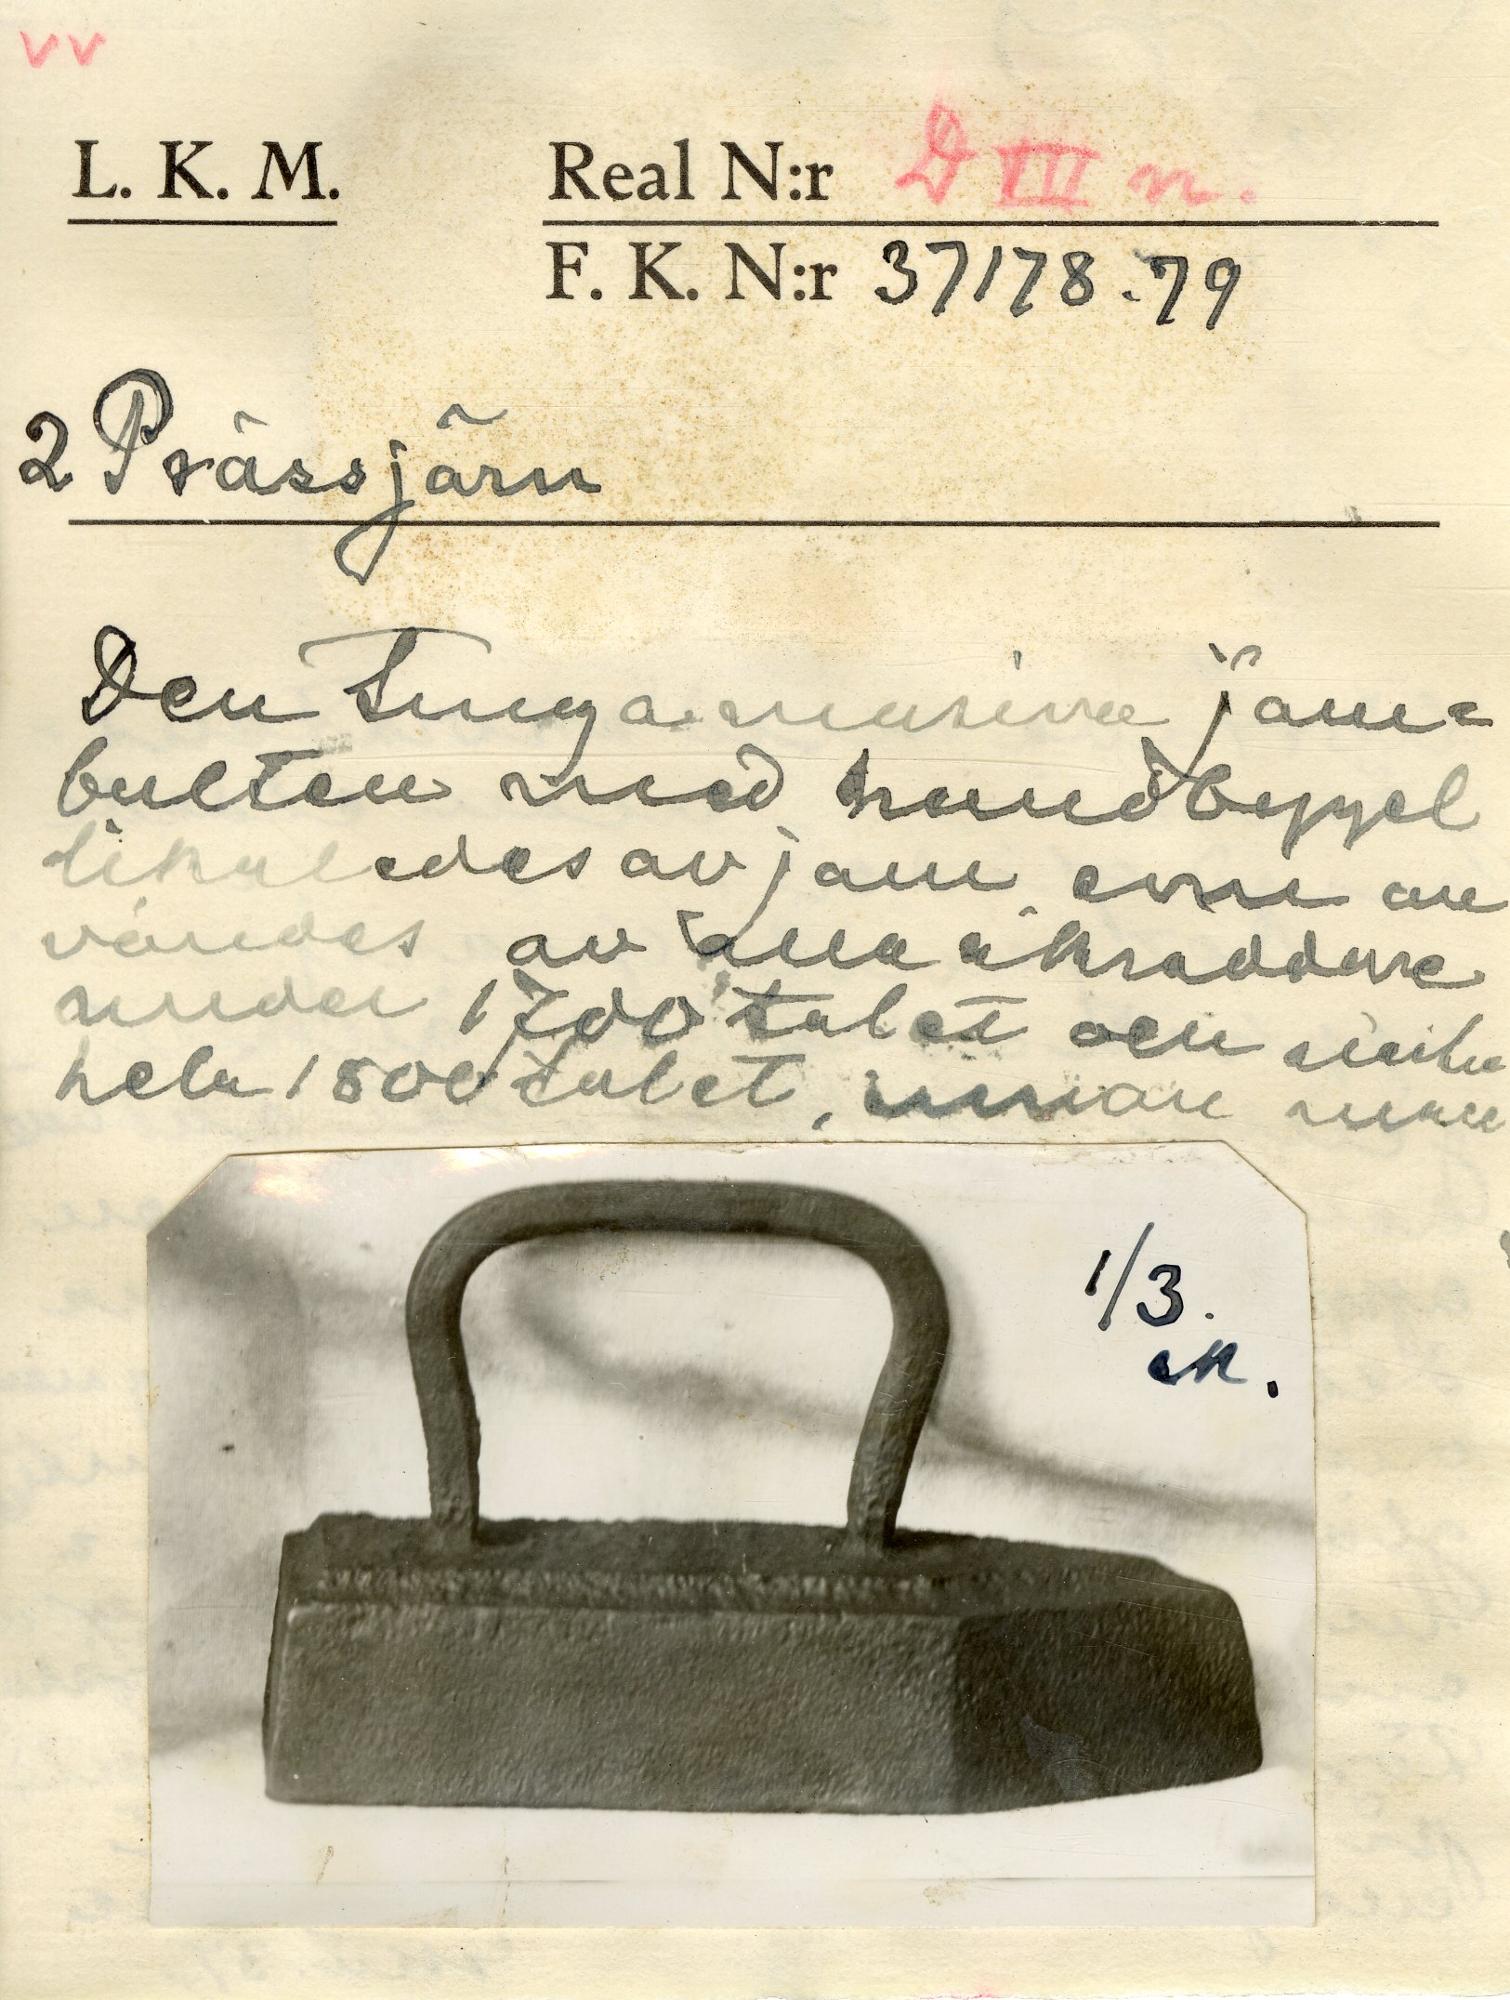 vv
L. K. M. Real N:r D III n.
F. K. N:r 37178-79
2 Prässjärn
Den tunga massiva järn-
bulten med handbygel
likaledes av järn, som an
vändes av alla skräddare
under 1700 talet och ännu
hela 1800 talet, innan man
1/3.